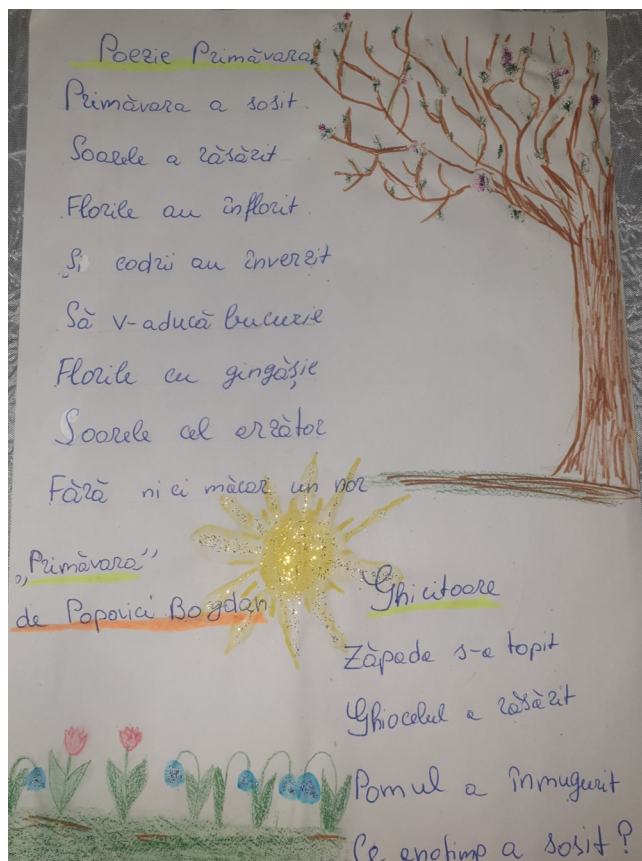 Poezie Primăvara
Primăvara a sosit
Soarele a răsărit
Florile au înflorit
Și codrii au înverzit
Să v-aducă bucurie
Florile cu gingășie
Soarele cel arzător
Fără nici măcar un nor
„Primăvara”
de Popovici Bogdan
Ghicitoare
Zăpada s-a topit
Ghiocelul a răsărit
Pomul a înmugurit
Ce anotimp a sosit?